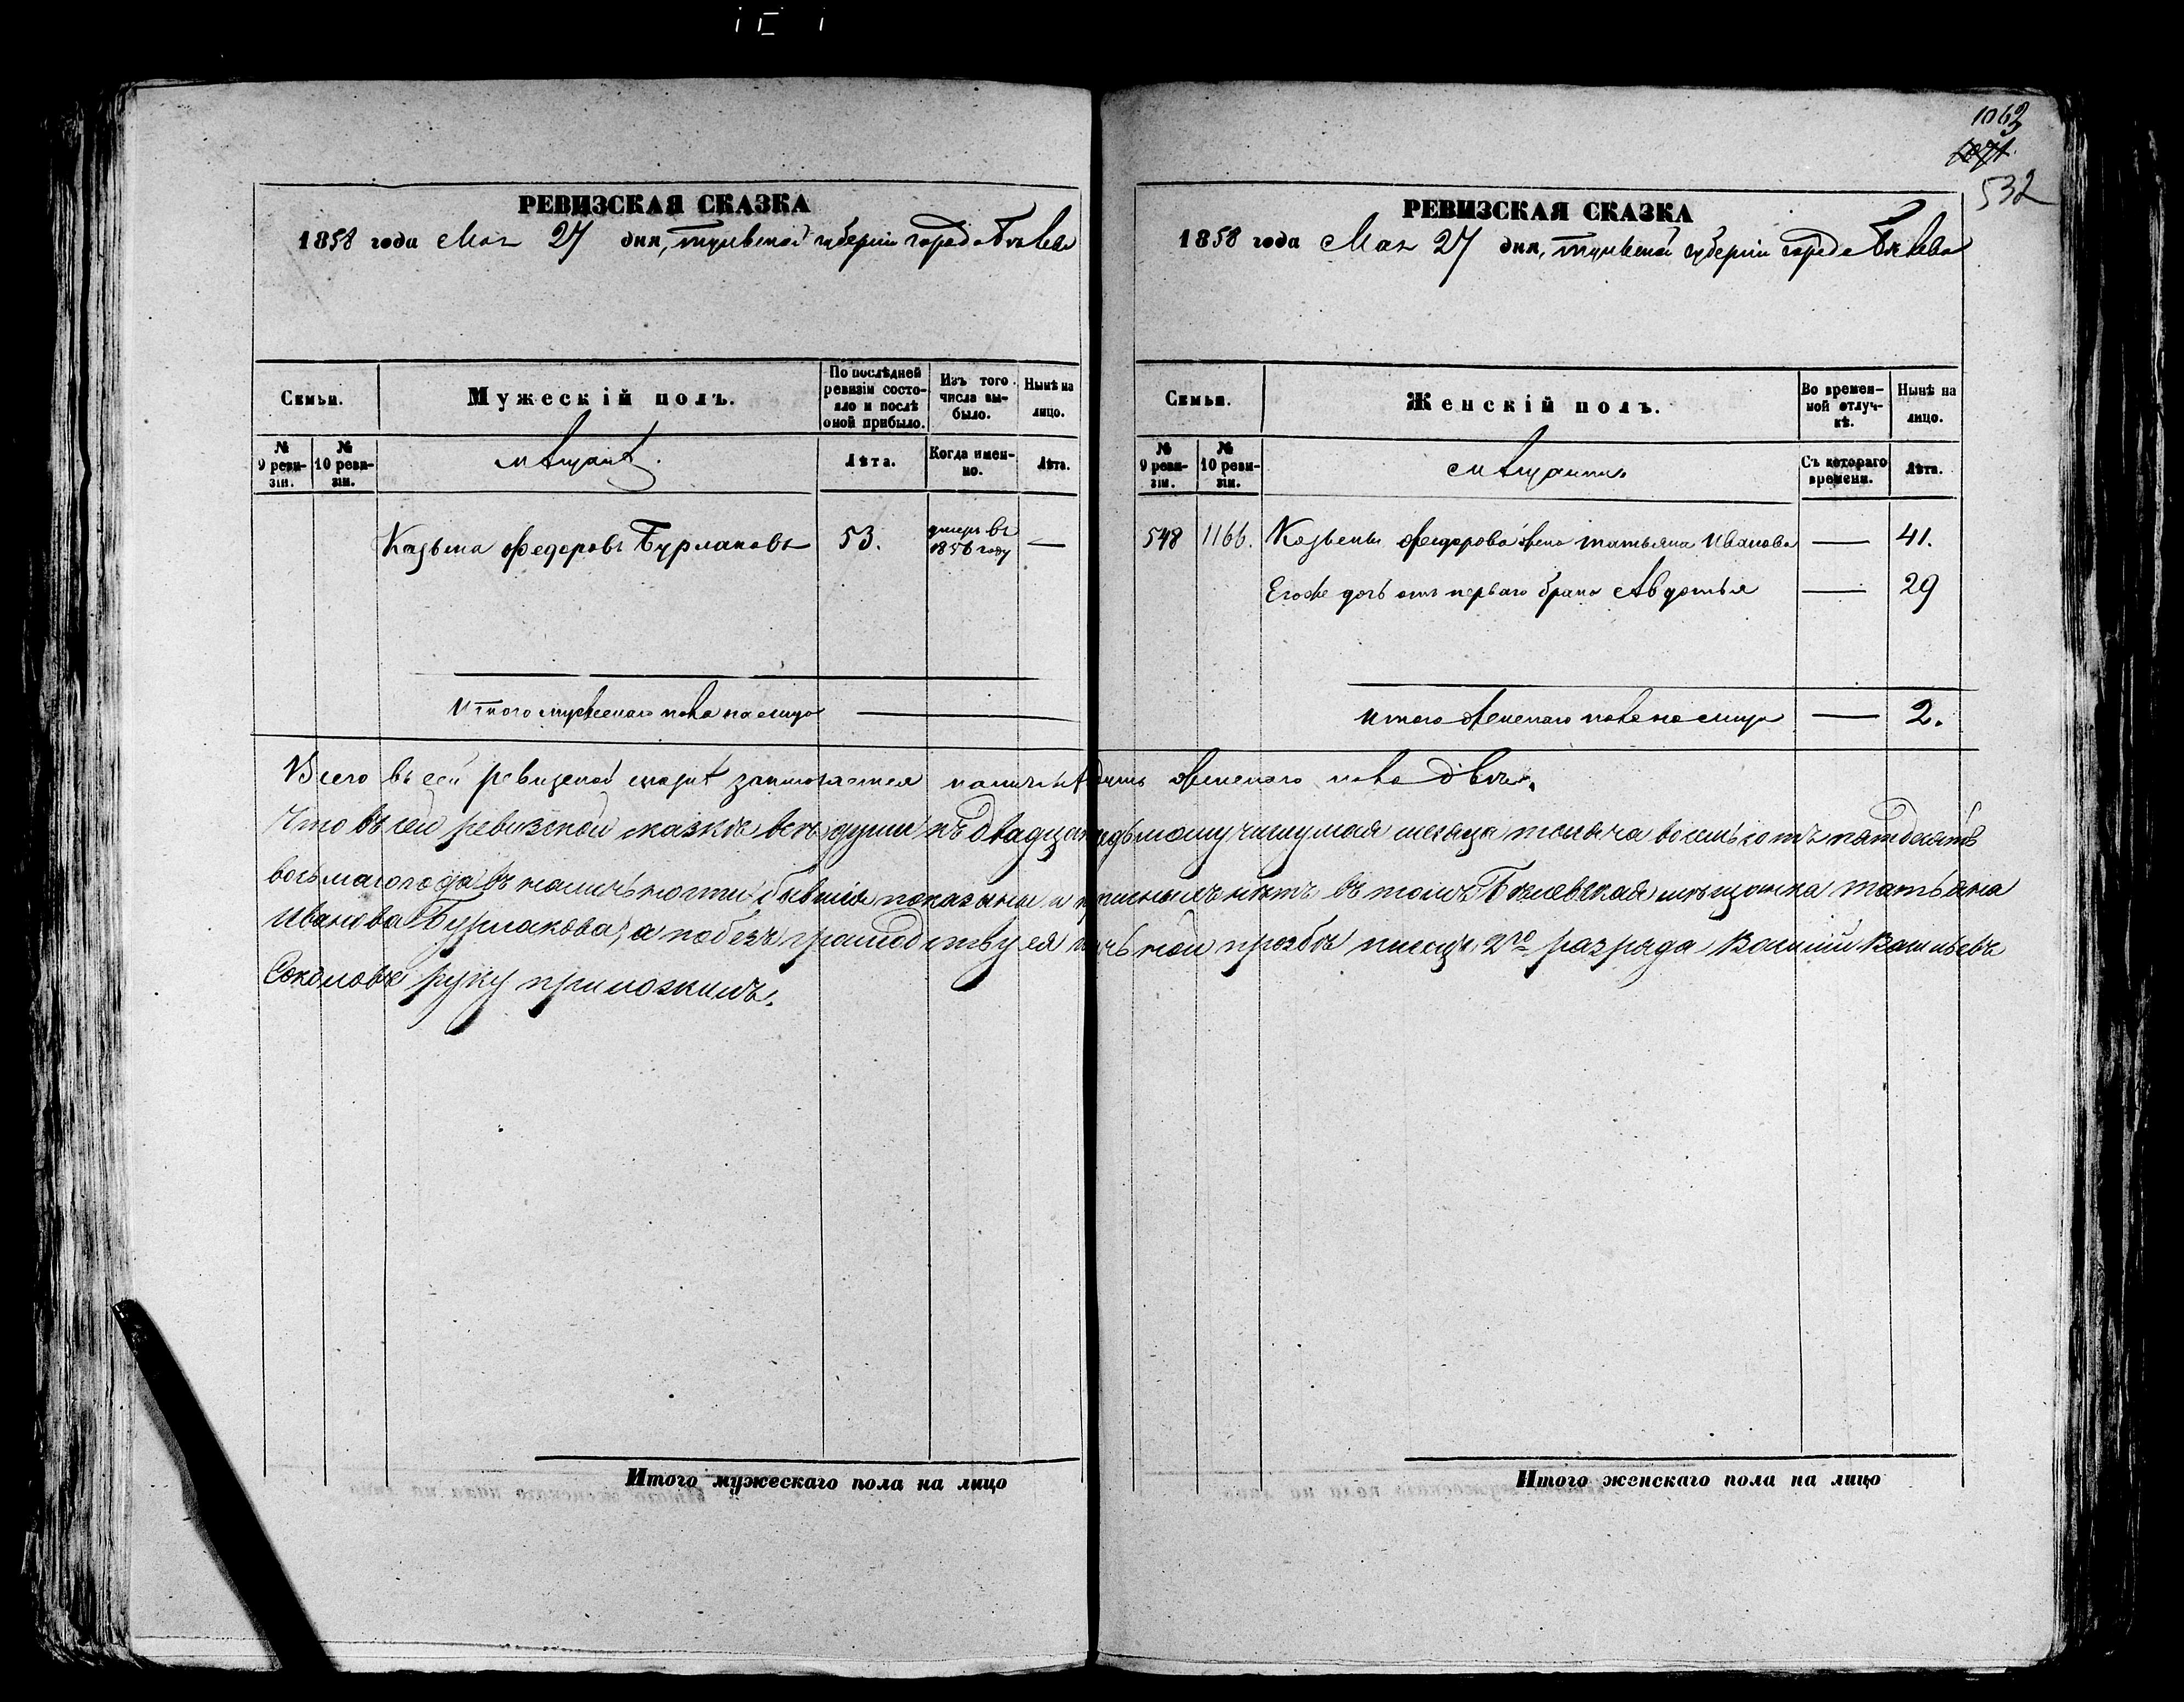 1063
532
РЕВИЗСКАЯ СКАЗКА
1858 года Мая 27 дня, Тульской губерніи города Бѣлева
Семьи.
Мужескій полъ.
По послѣдней ревизіи состояло и послѣ оной прибыло.
Изъ того числа выбыло.
Нынѣ на лицо.
№ 9 ревизіи.
№ 10 ревизіи.
мѣщанѣ.
Лѣта.
Когда именно.
Лѣта.
Казьма Федоровъ Бурлаковъ 53. умеръ въ 1856 году —
Итого мужескаго пола налицо —
РЕВИЗСКАЯ СКАЗКА
1858 года Мая 27 дня, Тульской губерніи города Бѣлева
Семьи.
Женскій полъ.
Во временной отлучкѣ.
Нынѣ на лицо.
№ 9 ревизіи.
№ 10 ревизіи.
мѣщанки
Съ котораго времени.
Лѣта.
548 1166. Козьмы Федорова жена Татьяна Иванова — 41.
Егоже дочь отъ перваго брака Авдотья — 29
Итого женскаго пола на лицо — 2.
Всего въ сей ревизской сказкѣ заключается наличныхъ душъ женскаго пола двѣ.
Что въ сей ревизской сказкѣ всѣ души къ двадцать седьмому числу мая месяца тысяча восемьсотъ пятдесятъ
восьмаго года въ наличности бывшія показаны и прописныхъ нѣтъ въ томъ Бѣлевская мѣщанка Татьяна
Иванова Бурлакова, а по безграмотству ея личной прозбѣ писецъ 2го разряда Василий Васильевъ
Соколовъ руку приложилъ.
Итого мужескаго пола на лицо
Итого женскаго пола на лицо